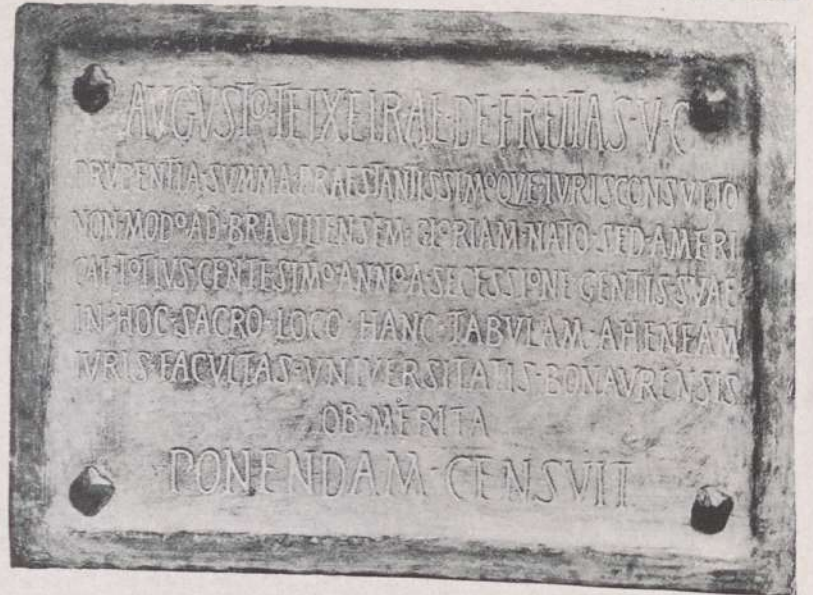 AVGVSTO·TEIXEIRAE·DE·FREITAS·V·C
PRVDENTIA·SVMMA·PRAESTANTISSIMOQVE·IVRISCONSVLTO
NON·MODO·AD·BRASILIENSEM·GLORIAM·NATO·SED·AMERI
CAE·TOTIVS·CENTESIMO·ANNO·A·SECESSIONE·GENTIS·SVAE
IN·HOC·SACRO·LOCO·HANC·TABVLAM·AHENEAM
IVRIS·FACVLTAS·VNIVERSITATIS·BONAVRENSIS
OB·MERITA
PONENDAM·CENSVIT